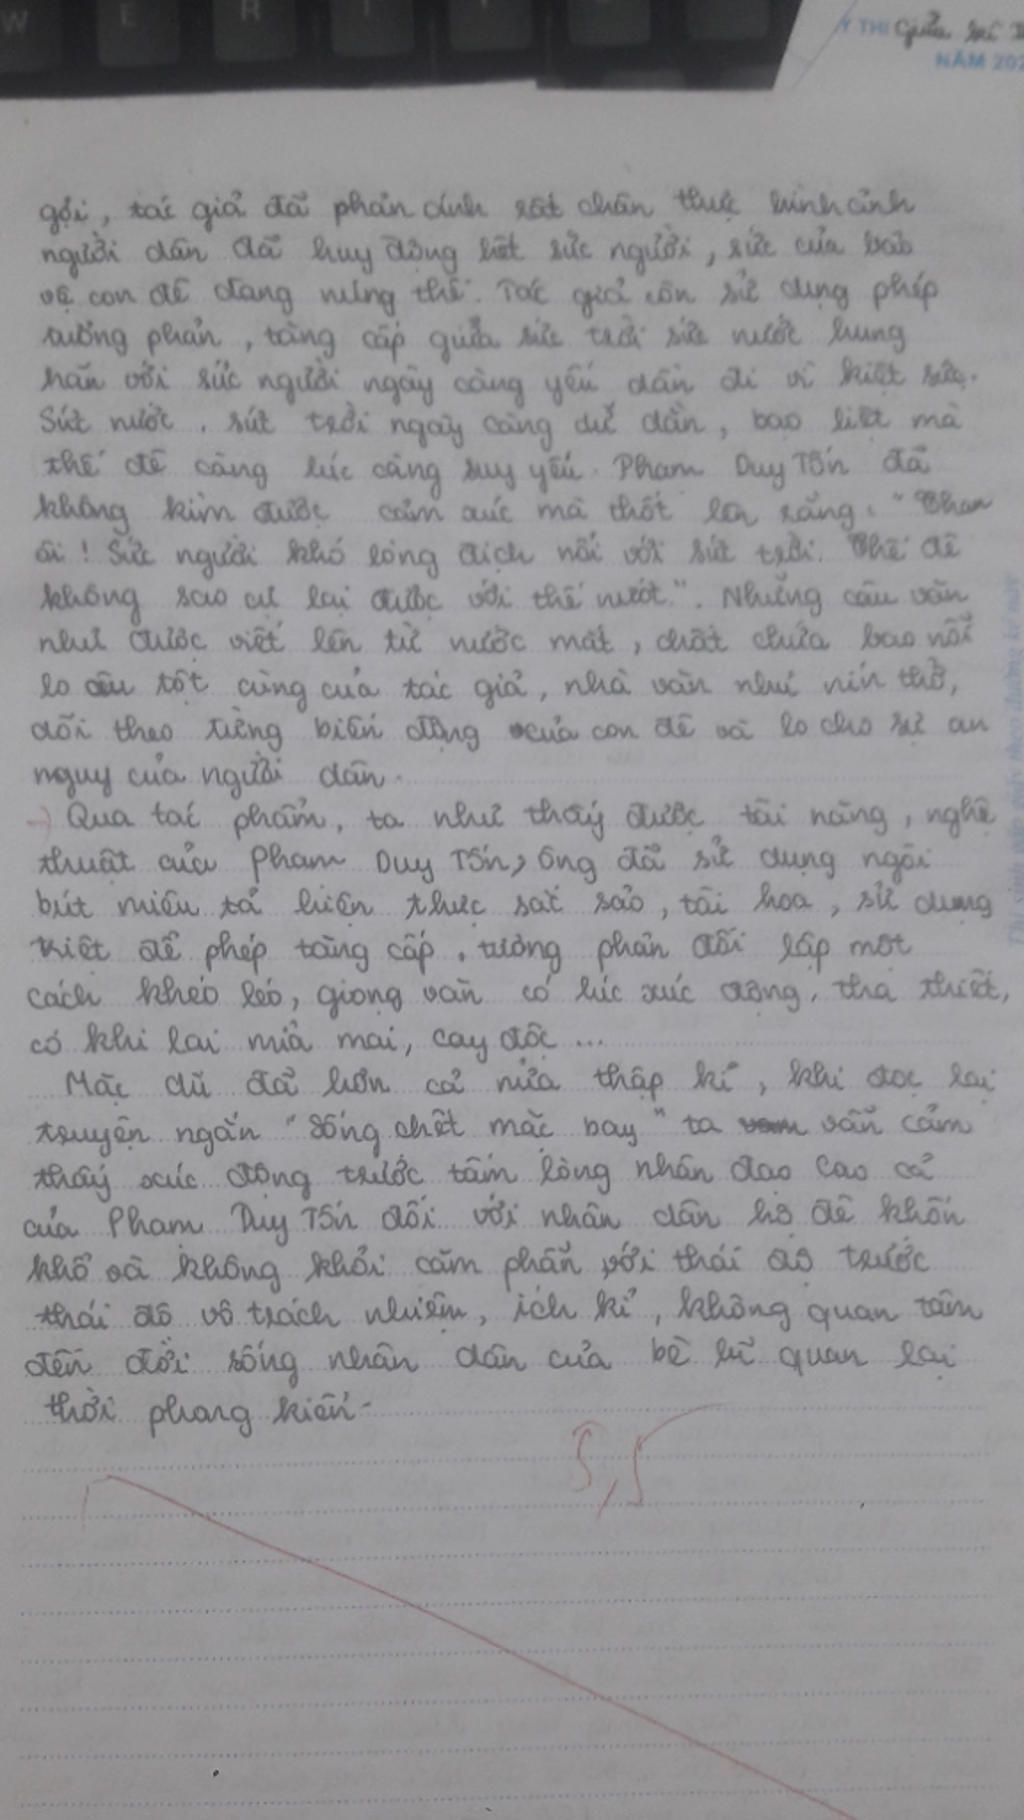 Y THI Giữa kì I
NĂM 202
gợi, tác giả đã phản ánh rất chân thực hình ảnh
người dân đã huy động hết sức người, sức của bảo
vệ con đê đang núng thế. Tác giả còn sử dụng phép
tương phản, tăng cấp giữa sức trời sức nước hung
hãn với sức người ngày càng yếu dần đi vì kiệt sức.
Sút nước, sút trời ngày càng dữ dằn, bạo liệt mà
thế đê càng lúc càng suy yếu. Phạm Duy Tốn đã
không kìm được cảm xúc mà thốt lên rằng: "Than
ôi! Sức người khó lòng địch nổi với sút trời. Thế đê
không sao cự lại được với thế nước.". Những câu văn
như được viết lên từ nước mắt, chất chứa bao nỗi
lo âu tột cùng của tác giả, nhà văn như nín thở,
dõi theo từng biến động của con đê và lo cho sự an
nguy của người dân.
→ Qua tác phẩm, ta như thấy được tài năng, nghệ
thuật của Phạm Duy Tốn, ông đã sử dụng ngòi
bút miêu tả hiện thực sắc sảo, tài hoa, sử dụng
triệt để phép tăng cấp, tương phản đối lập một
cách khéo léo, giọng văn có lúc xúc động, tha thiết,
có khi lại mỉa mai, cay độc ...
Mặc dù đã hơn cả nửa thập kỉ, khi đọc lại
truyện ngắn "Sống chết mặc bay" ta vẫn cảm
thấy xúc động trước tấm lòng nhân đạo cao cả
của Phạm Duy Tốn đối với nhân dân hộ đê khốn
khổ và không khỏi căm phẫn với thái độ trước
thái độ vô trách nhiệm, ích kỉ, không quan tâm
đến đời sống nhân dân của bè lũ quan lại
thời phong kiến.
5,5